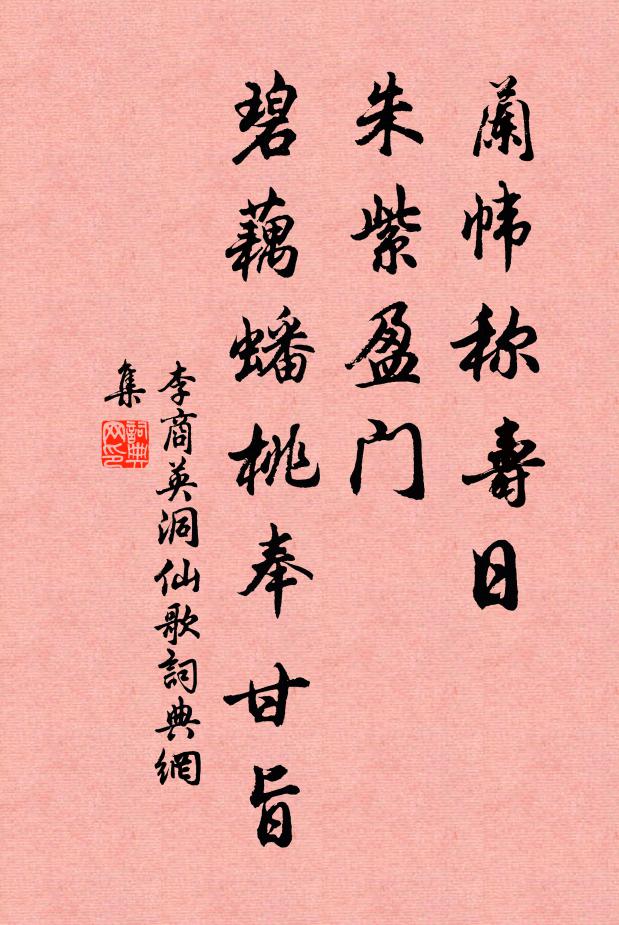 蘭帏称壽日
朱紫盈门
碧藕蟠桃奉甘旨
李商英洞仙歌詞典網
集
詞典网印